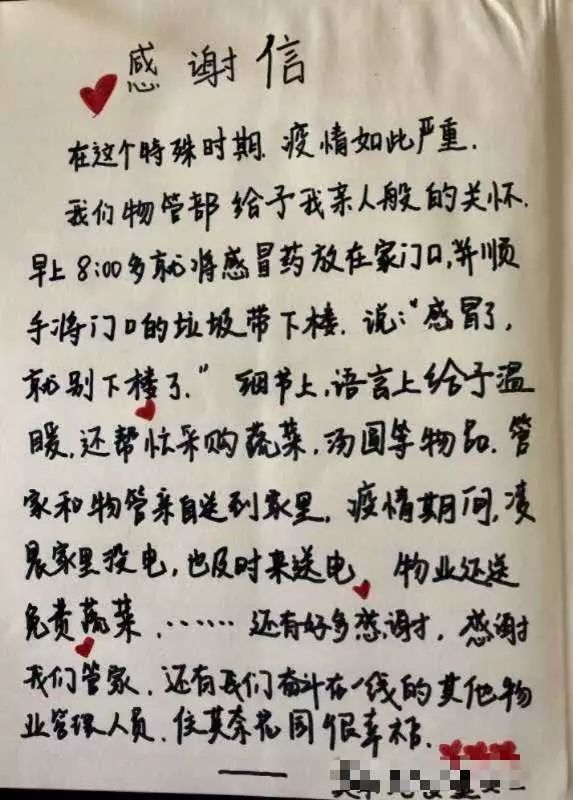 感谢信
在这个特殊时期.疫情如此严重.
我们物管部给予我亲人般的关怀.
早上8:00多就将感冒药放在家门口,并顺
手将门口的垃圾带下楼.说:"感冒了,
就别下楼了."细节上,语言上给予温
暖,还帮忙采购蔬菜,汤圆等物品.管
家和物管亲自送到家里.疫情期间,凌
晨家里没电,也及时来送电 物业还送
免费蔬菜.……还有好多感谢,感谢
我们管家.还有我们奋斗在一线的其他物
业管理人员.住英奈花园很幸福.